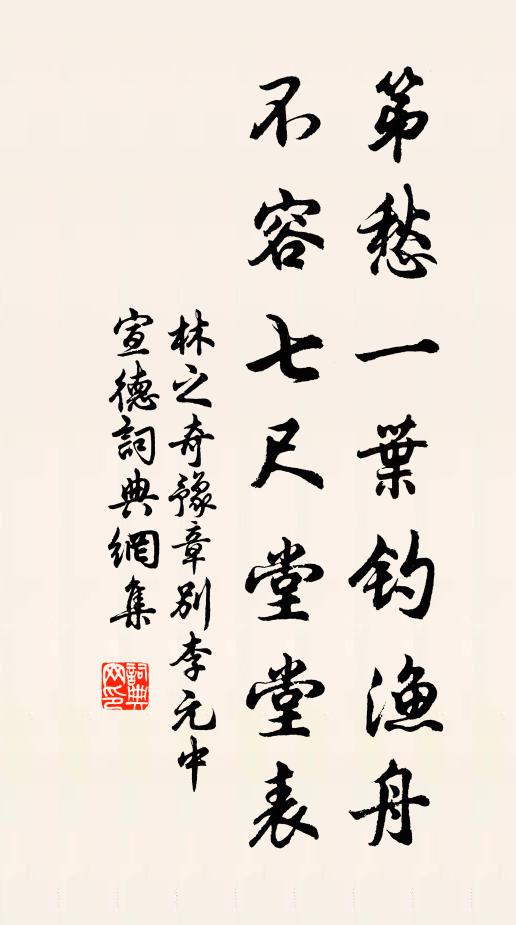 第愁一葉钓渔舟
不容七尺堂堂表
林之奇豫章别李元中
宣德詞典網集
詞典网印